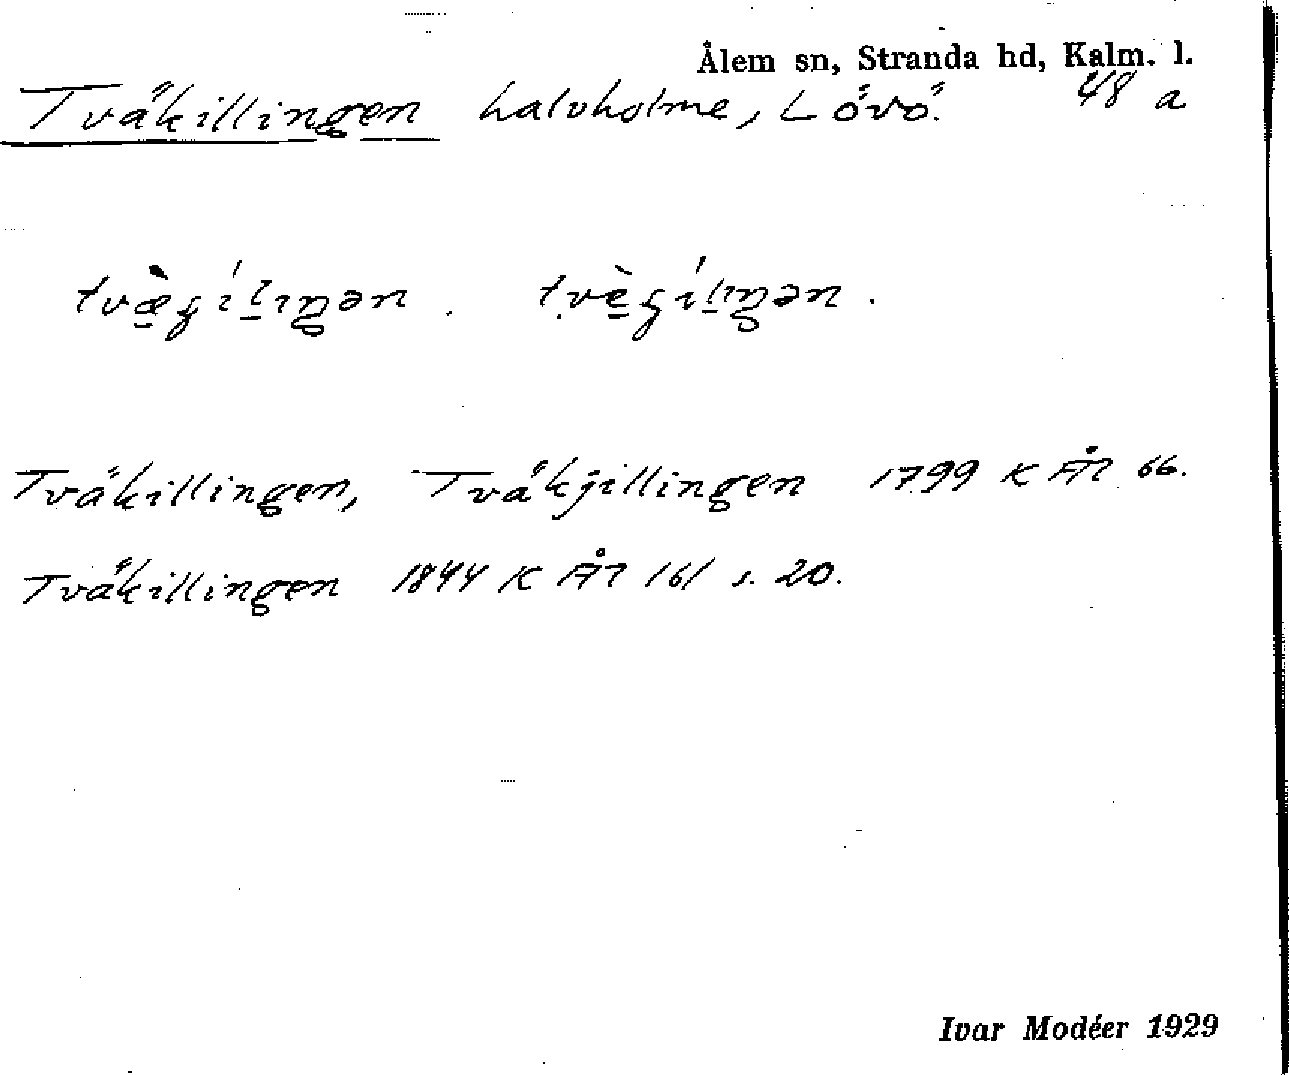 Ålem sn, Stranda hd, Kalm. l.
Tväkillingen halvholme, Lövö. 48 a
Tväkillingen, Tväkjillingen 1799 K ÅR 66.
Tväkillingen 1844 K ÅR 161 s. 20.
Ivar Modéer 1929